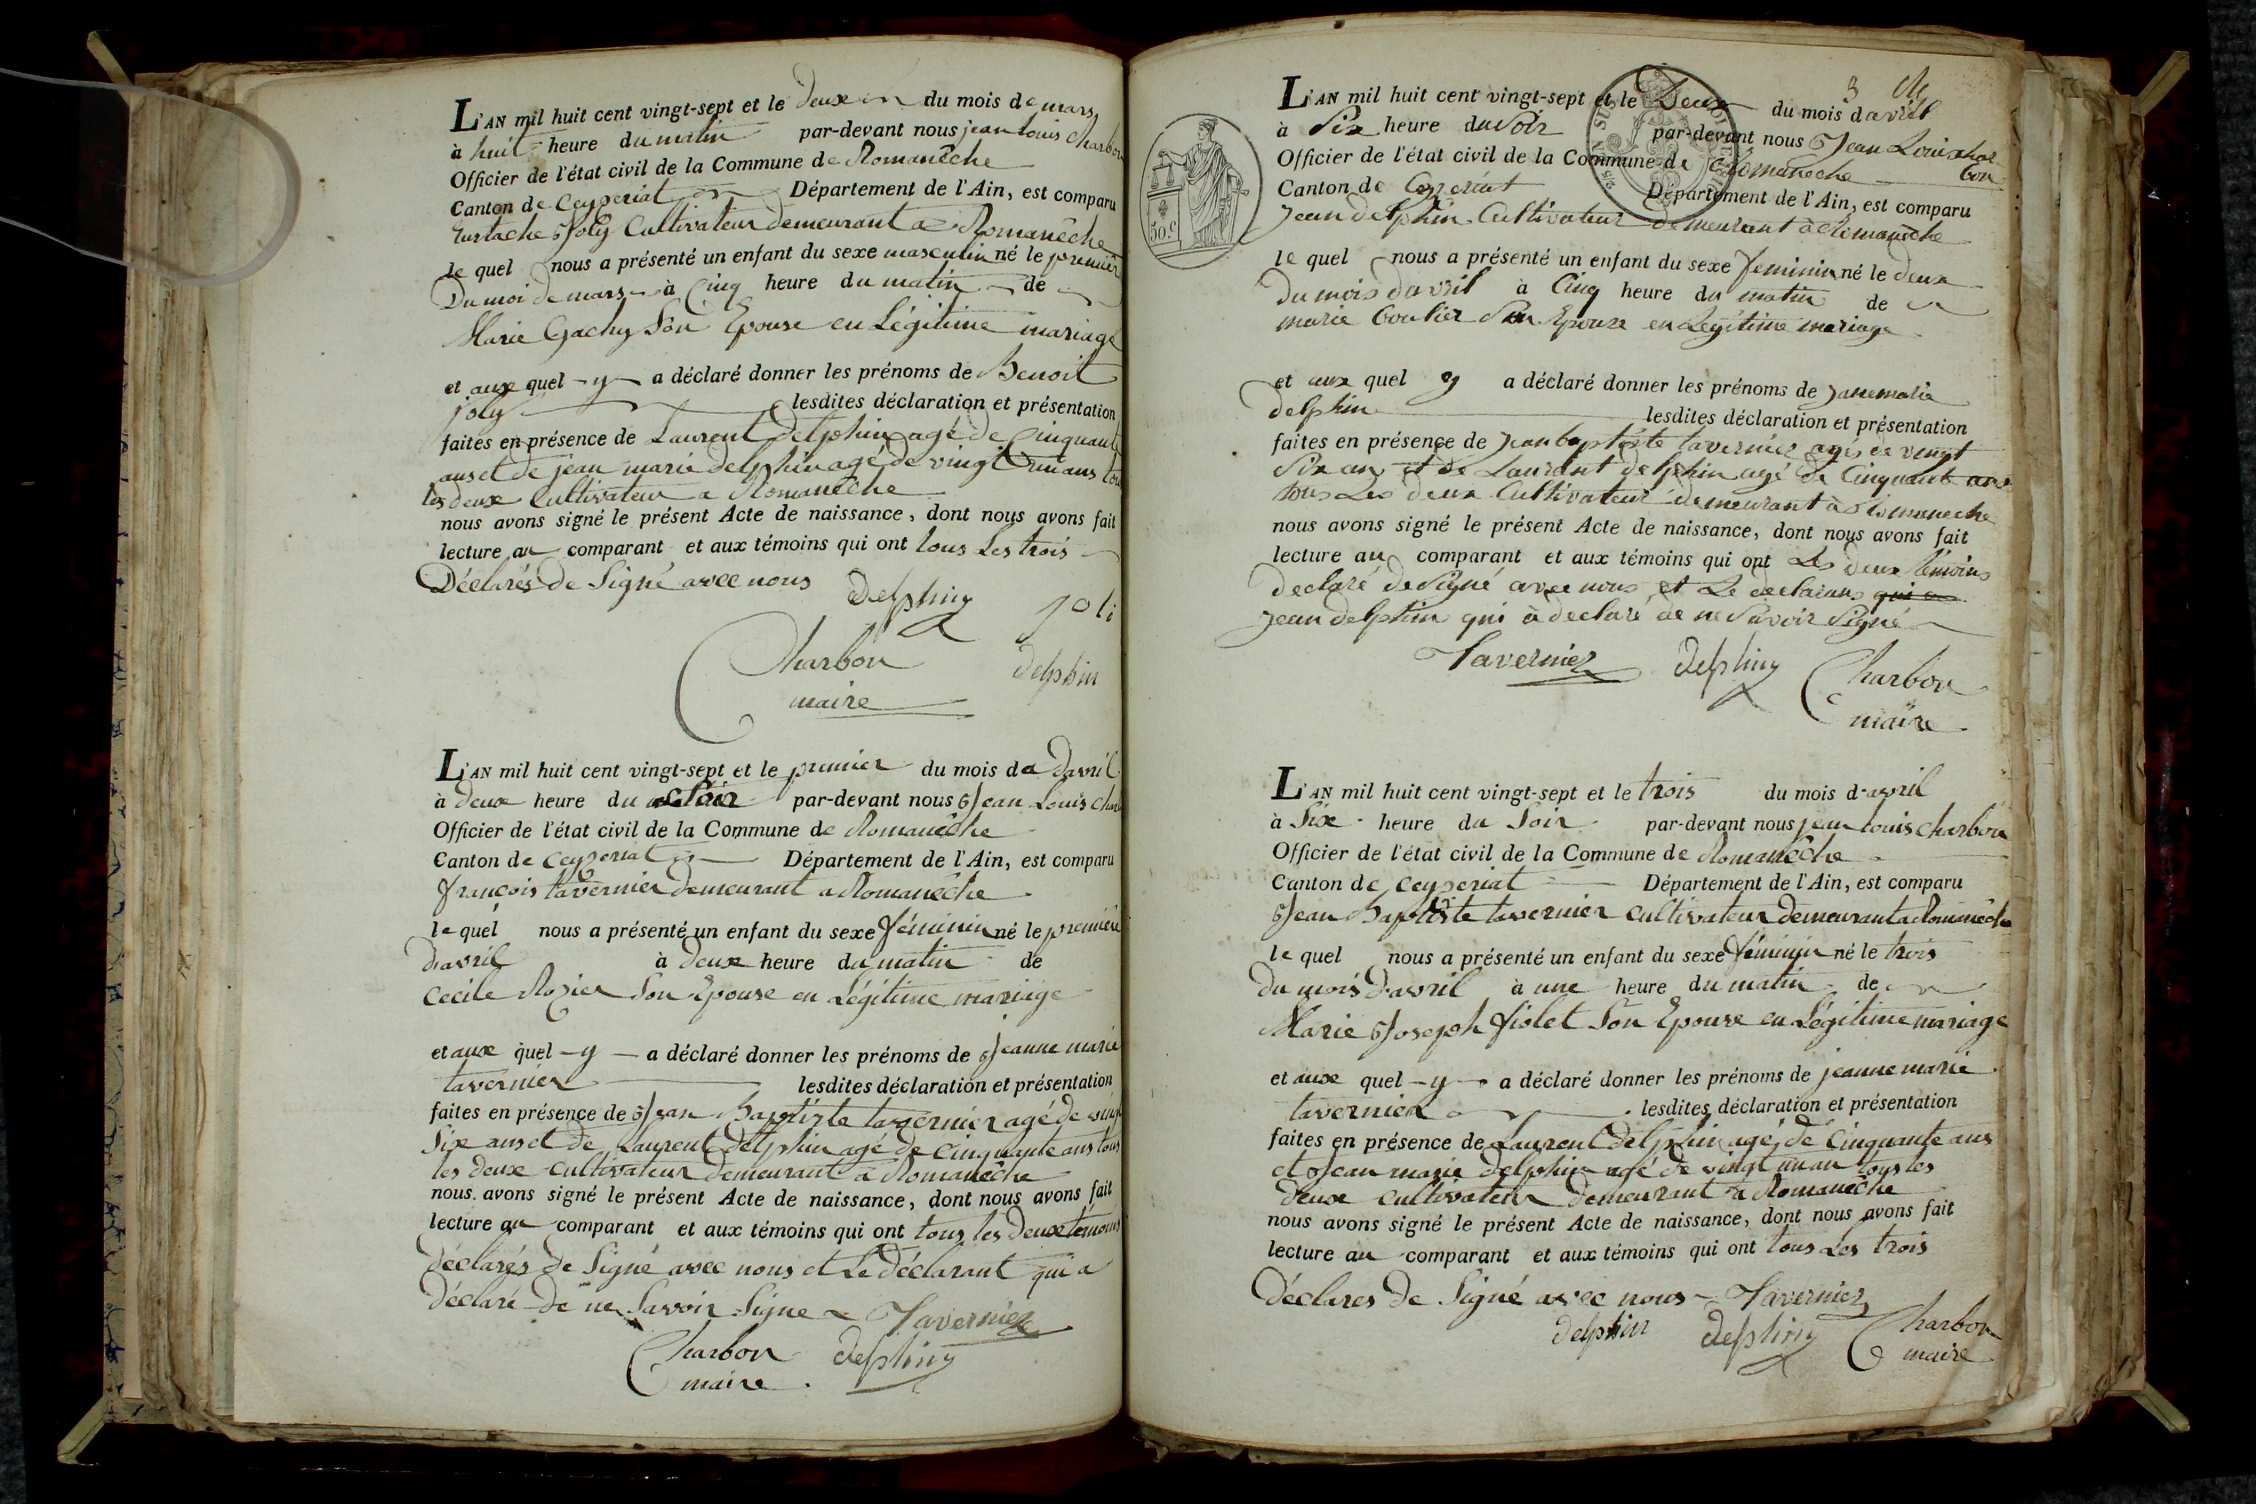 L'AN mil huit cent vingt-sept et le deux du mois de mars
à huit heure du matin par-devant nous jean louis charbon
Officier de l'état civil de la Commune de Romanêche
Canton de Ceyzeriat Département de l'Ain, est comparu
Eustache Joly Cultivateur demeurant a Romanêche
le quel nous a présenté un enfant du sexe masculin né le premier
Du moi de mars à Cinq heure du matin de
Marie Gachy Son Epouse en Légitime mariage
et aux quel y a déclaré donner les prénoms de Benoit
joly lesdites déclaration et présentation
faites en présence de Laurent Delphin agé de Cinquante
ans et de jean marie delphin agé de vingt un ans tous
les deux Cultivateur a Romanêche
nous avons signé le présent Acte de naissance, dont nous avons fait
lecture au comparant et aux témoins qui ont tous Les trois
Déclarés de Signé avec nous Delphin joli
Charbon delphin
maire
L'AN mil huit cent vingt-sept et le premier du mois de Davril
à deux heure du Soir par-devant nous Jean Louis Char
Officier de l'état civil de la Commune de Romanêche
Canton de Ceyzeriat Département de l'Ain, est comparu
françois tavernier demeurant a Romanêche
le quel nous a présenté un enfant du sexe féminin né le premier
d'avril à deux heure du matin de
Cecile Rozier Son Epouse en Légitime mariage
et aux quel y a déclaré donner les prénoms de Jeanne marie
tavernier lesdites déclaration et présentation
faites en présence de Jean Baptiste tavernier agé de vingt
Six ans et de Laurent Delphin agé de Cinquante ans tous
les deux cultivateur Demeurant a Romanêche
nous avons signé le présent Acte de naissance, dont nous avons fait
lecture au comparant et aux témoins qui ont tous les Deux témoins
déclarés de Signé avec nous et Le déclarant qui a
déclaré de ne Savoir Signe Tavernier
Charbon Delphin
maire
3
L'AN mil huit cent vingt-sept et le Deux du mois d'avril
à Six heure du Soir par-devant nous Jean Louis char
Officier de l'état civil de la Commune de Romaneche bon
Canton de Ceyzeriat Département de l'Ain, est comparu
Jean delphin Cultivateur demeurant à Romanêche
30.c
le quel nous a présenté un enfant du sexe feminin né le deux
Du mois davril à Cinq heure du matin de
marie Boulier Son Epouze en Legitime mariage
et aux quel y a déclaré donner les prénoms de Janemarie
delphin lesdites déclaration et présentation
faites en présence de Jean baptiste tavernier agés de vingt
Six ans et de Laurant delphin agé de Cinquante ans
tous Les deux Cultivateur demeurant à Romaneche
nous avons signé le présent Acte de naissance, dont nous avons fait
lecture au comparant et aux témoins qui ont Les deux témoins
declaré de Signé avec nous et Le declarans qui a
Jean delphin qui à declaré de ne Savoir Signé
Tavernier Delphin Charbon
maire
L'AN mil huit cent vingt-sept et le trois du mois d'avril
à Six heure du Soir par-devant nous jean louis charbon
Officier de l'état civil de la Commune de Romanêche
Canton de Ceyzeriat Département de l'Ain, est comparu
Jean Baptiste tavernier cultivateur demeurant a Romanêche
le quel nous a présenté un enfant du sexe féminin né le trois
Du mois D'avril à une heure du matin de
Marie Joseph fiolet Son Epouse en Légitime mariage
et aux quel y a déclaré donner les prénoms de jeanne marie
tavernier lesdites déclaration et présentation
faites en présence de Laurent Delphin agé de Cinquante ans
et Jean marie Delphin agé de vingt un an tous les
deux cultivateur Demeurant a Romanêche
nous avons signé le présent Acte de naissance, dont nous avons fait
lecture au comparant et aux témoins qui ont tous Les trois
Déclares de Signé avec nous Tavernier
delphin Delphin Charbon
maire